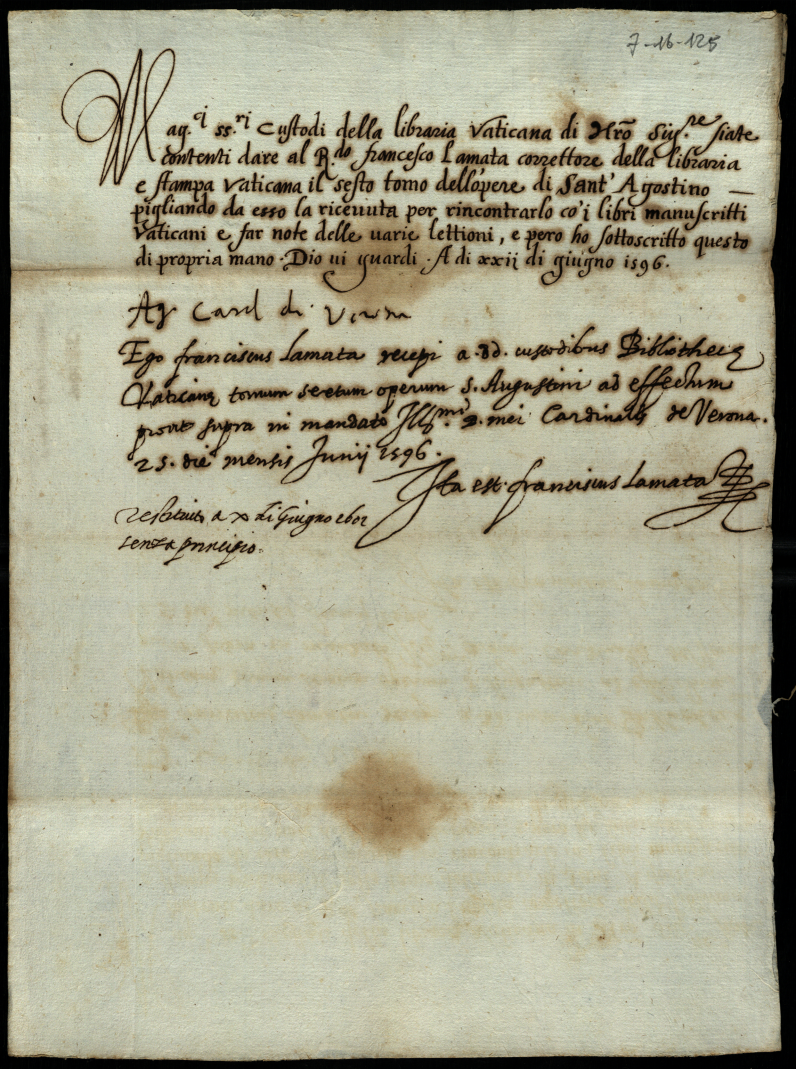 7-16-125
Mag.ci ss.ri Custodi della libraria Vaticana di Nrõ Sig.re siate
contenti dare al R.do francesco Lamata correttore della libraria
e stampa Vaticana il sesto tomo dell'opere di Sant' Agostino —
pigliando da esso la ricevuta per rincontrarlo co'i libri manuscritti
Vaticani e far note delle varie lettioni, e pero ho sottoscritto questo
di propria mano. Dio vi guardi. A di xxij di giugno 1596.
Ag Card di Verona
Ego franciscus Lamata recepi a dd. custodibus Bibliothecę
Vaticanę tomum sextum operum S. Augustini ad effectum
prout supra in mandato Ill.mi D. mei Cardinalis de Verona.
25. die mensis Junij 1596.
Ita est. franciscus Lamata
restituito a x di Giugno
senza principio.